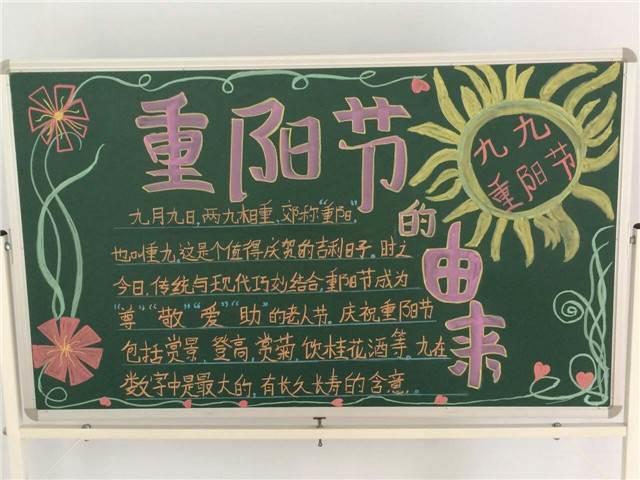 重阳节
的
由来
九九
重阳节
九月九日,两九相重,郊称“重阳”,
也叫重九,这是个值得庆贺的吉利日子。时之
今日,传统与现代巧妙结合,重阳节成为
“尊”“敬”“爱”“助”的老人节。庆祝重阳节
包括赏景、登高,赏菊,饮桂花酒等。九在
数字中是最大的,有长久长寿的含意。